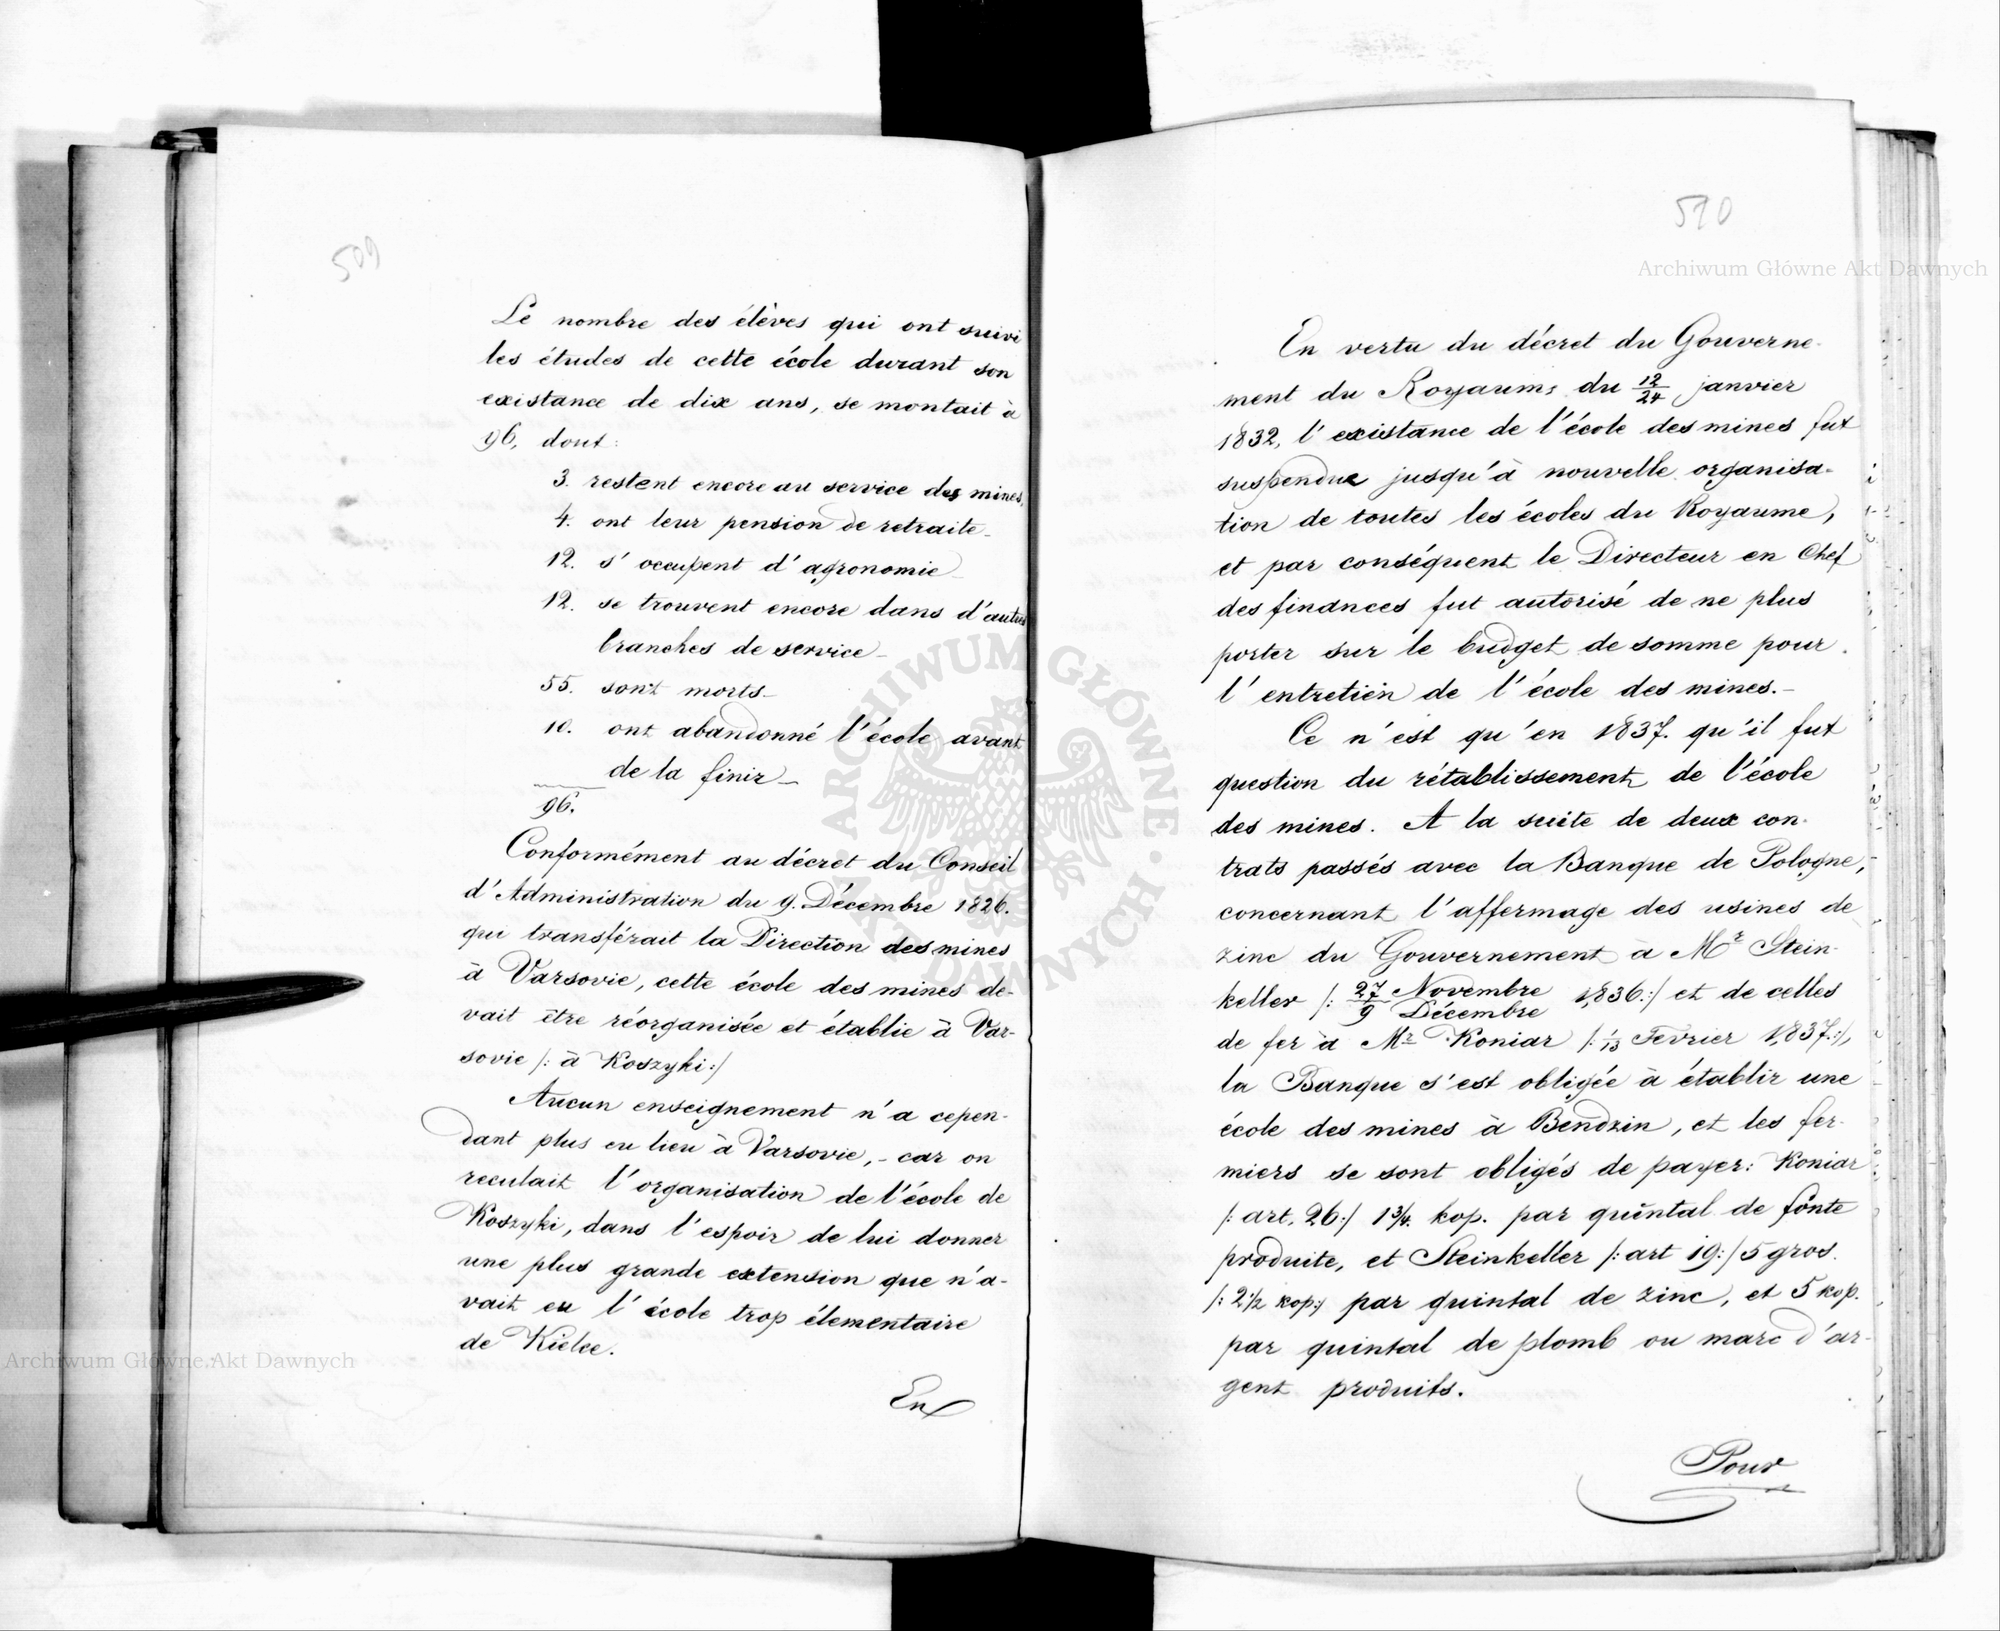 509
Le nombre des élèves qui ont suivi
les études de cette école durant son
existance de dix ans, se montait à
96, dont:
3. restent encore au service des mines,
4. ont leur pension de retraite.
12. s'occupent d'agronomie
12. se trouvent encore dans d'autres
branches de service
55. sont morts
10. ont abandonné l'école avant
de la finir
96.
Conformément au décret du Conseil
d'Administration du 9. Décembre 1826.
qui transférait la Direction des mines
à Varsovie, cette école des mines de-
vait être réorganisée et établie à Var-
sovie /: à Koszyki:/
Aucun enseignement n'a cepen-
dant plus eu lieu à Varsovie, - car on
reculait l'organisation de l'école de
Koszyki, dans l'espoir de lui donner
une plus grande extension que n'a-
vait eu l'école trop élementaire
de Kielce.
En
510
En vertu du décret du Gouverne-
ment du Royaume du 12/24 janvier
1832, l'existance de l'école des mines fut
suspendue jusqu'à nouvelle organisa-
tion de toutes les écoles du Royaume,
et par conséquent le Directeur en Chef
des finances fut autorisé de ne plus
porter sur le budget de somme pour
l'entretien de l'école des mines.-
Ce n'est qu'en 1837. qu'il fut
question du rétablissement de l'école
des mines. A la suite de deux con-
trats passés avec la Banque de Pologne,
concernant l'affermage des usines de
zinc du Gouvernement à Mr Stein-
keller /: 27 Novembre / 9 Décembre 1836:/ et de celles
de fer à Mr Koniar /: 1/13 Fevrier 1837:/,
la Banque s'est obligée à établir une
école des mines à Bendzin, et les fer-
miers se sont obligés de payer: Koniar
/: art. 26:/ 1 3/4 kop. par quintal de fonte
produite, et Steinkeller /: art 19:/ 5 gros.
/: 2 1/2 kop:/ par quintal de zinc, et 5 kop.
par quintal de plomb ou marc d'ar-
gent produits.
Pour
Archiwum Główne Akt Dawnych
Archiwum Główne Akt Dawnych
ARCHIWUM GŁÓWNE AKT DAWNYCH